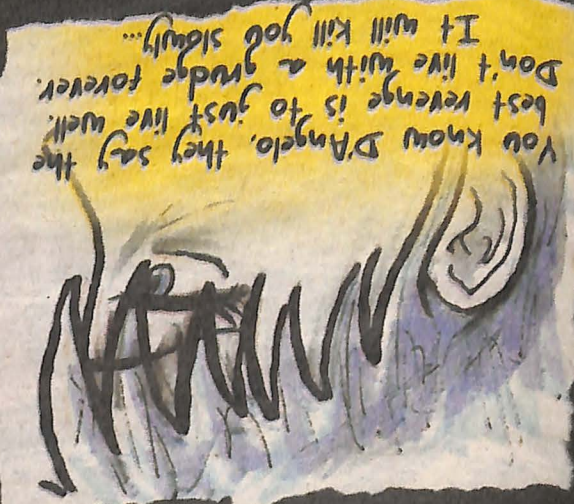 You know D'Angelo, they say the
best revenge is to just live well.
Don't live with a grudge forever.
It will kill you slowly...